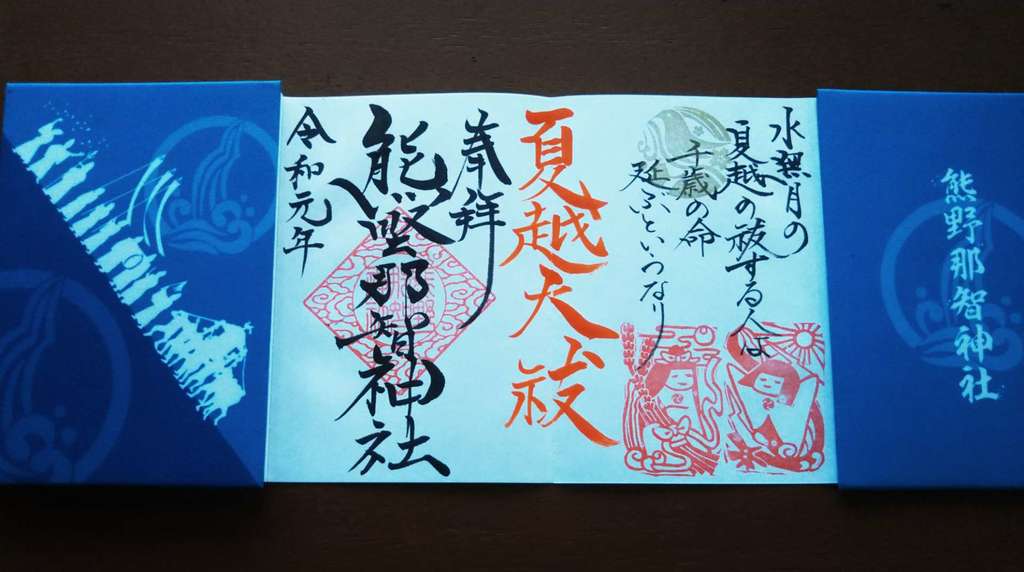 熊野那智神社
水無月の
夏越の祓する人は
千歳の命
延ぶというなり
夏越大祓
奉拝
熊野那智神社
令和元年